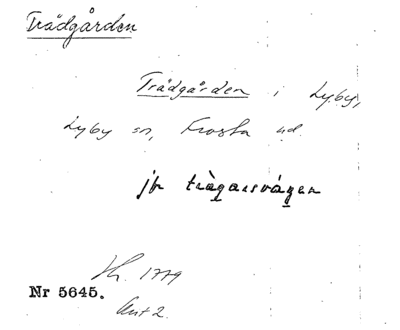 Trädgården
Trädgården i Lyby,
Lyby sn, Frosta hd.
jfr trägarsvägen
Nr 5645. 1779
Ant 2.